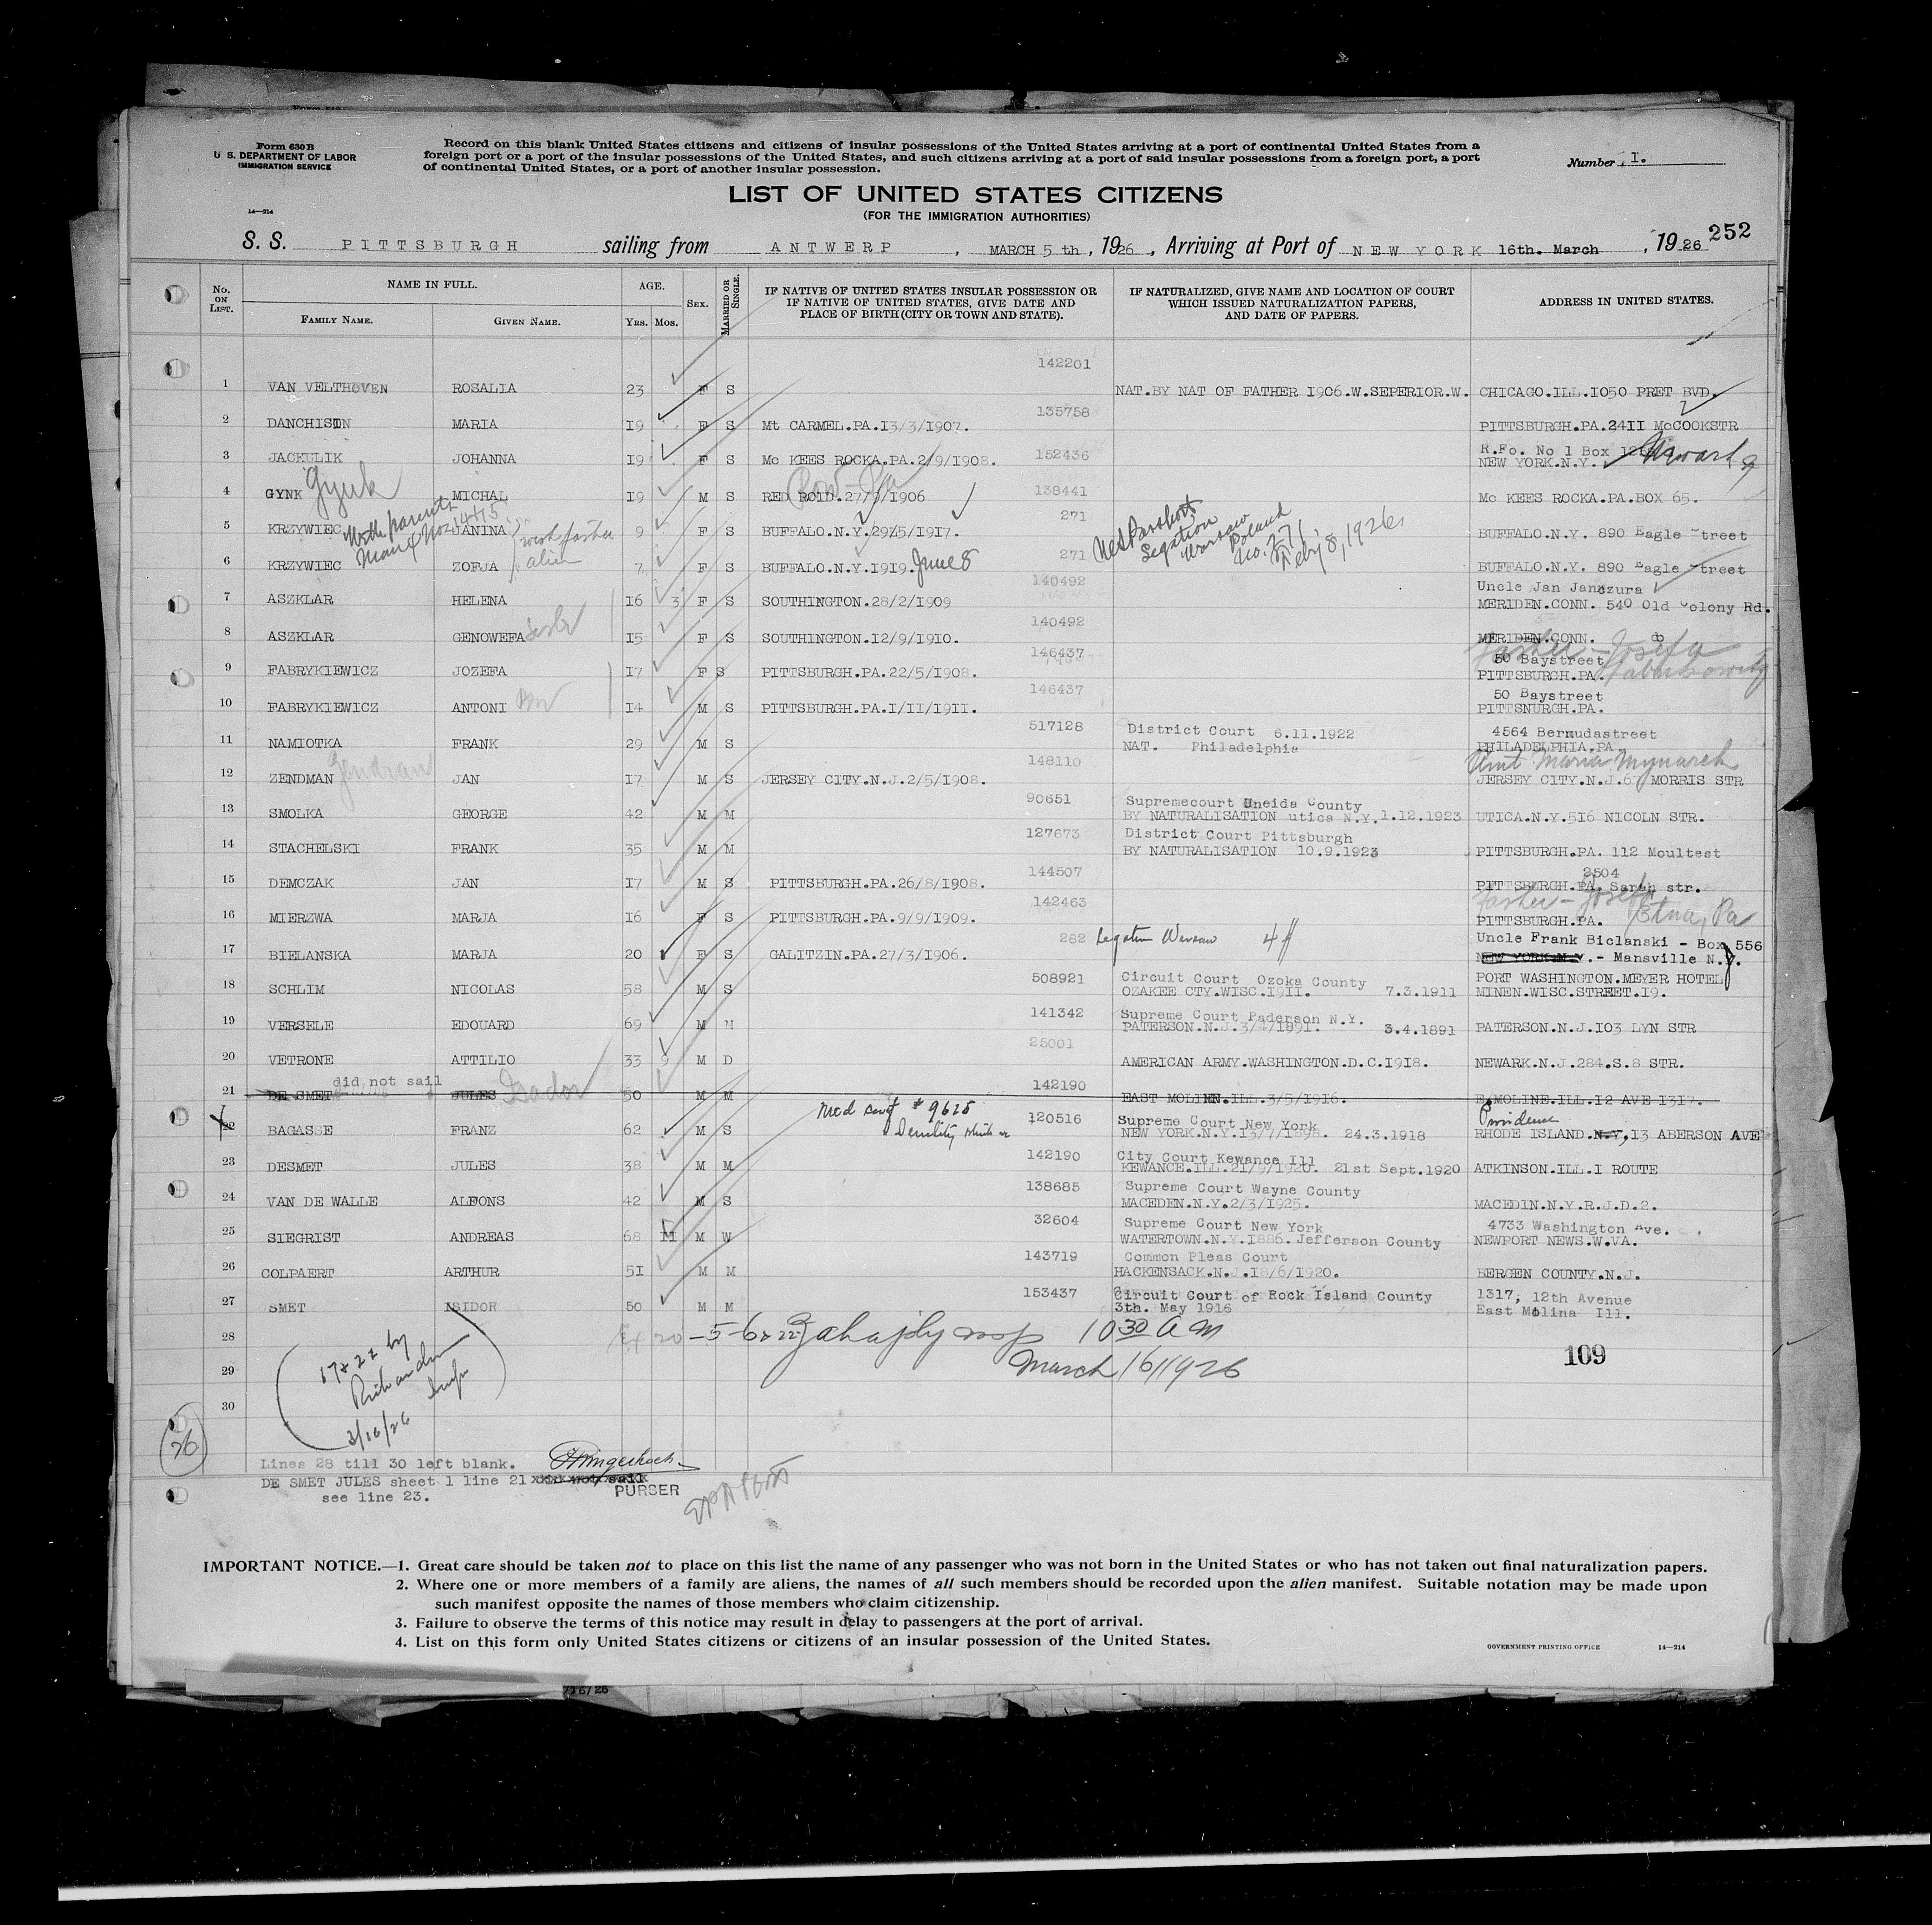 Form 630 B
U. S. DEPARTMENT OF LABOR
IMMIGRATION SERVICE
14—214
Record on this blank United States citizens and citizens of insular possessions of the United States arriving at a port of continental United States from a
foreign port or a port of the insular possessions of the United States, and such citizens arriving at a port of said insular possessions from a foreign port, a port
of continental United States, or a port of another insular possession.
Number, I.
LIST OF UNITED STATES CITIZENS
(FOR THE IMMIGRATION AUTHORITIES)
S. S. PITTSBURGH sailing from ANTWERP, MARCH 5 th, 1926, Arriving at Port of NEW YORK 16th. March, 1926 252
No. ON LIST. NAME IN FULL. FAMILY NAME. GIVEN NAME. AGE. YRS. MOS. SEX. MARRIED OR SINGLE.
IF NATIVE OF UNITED STATES INSULAR POSSESSION OR
IF NATIVE OF UNITED STATES, GIVE DATE AND
PLACE OF BIRTH (CITY OR TOWN AND STATE).
IF NATURALIZED, GIVE NAME AND LOCATION OF COURT
WHICH ISSUED NATURALIZATION PAPERS,
AND DATE OF PAPERS.
ADDRESS IN UNITED STATES.
142201
1 VAN VELTHOVEN ROSALIA 23 F S NAT.BY NAT OF FATHER I906.W.SEPERIOR.W. CHICAGO.ILL.I050 PRET BVD.
135758
2 DANCHISIN MARIA I9 F S Mt CARMEL.PA.I3/3/I907. PITTSBURGH.PA.24II McCOOKSTR
152436 R.Fo. No 1 Box
3 JACKULIK JOHANNA I9 F S Mc KEES ROCKA.PA.2/9/I908. NEW YORK.N.Y.
Gynk 138441
4 GYNK MICHAL I9 M S RED ROID.27/9/I906 Mc KEES ROCKA.PA.BOX 65.
With parents 271
5 KRZYWIEC JANINA 9 F S BUFFALO.N.Y.29/5/I9I7. BUFFALO.N.Y. 890 Eagle Street
with father alien
Legation Warsaw Poland No. 271 Feby 8, 1926
271
6 KRZYWIEC ZOFJA 7 F S BUFFALO.N.Y.I9I9. June 8 BUFFALO.N.Y. 890 Eagle Street
140492 Uncle Jan Janczura
7 ASZKLAR HELENA I6 3 F S SOUTHINGTON.28/2/I909 MERIDEN.CONN. 540 Old Colony Rd.
140492
8 ASZKLAR GENOWEFA F S I5 SOUTHINGTON.I2/9/I9I0. MERIDEN.CONN. do
146437 50 Baystreet
9 FABRYKIEWICZ JOZEFA I7 F S PITTSBURGH.PA.22/5/I908. PITTSBURGH.PA.
146437 50 Baystreet
10 FABRYKIEWICZ ANTONI I4 M S PITTSBURGH.PA.I/II/I9II. PITTSNURGH.PA.
517128 District Court 6.11.1922 4564 Bermudastreet
11 NAMIOTKA FRANK 29 M S NAT. Philadelphia PHILADELPHIA.PA.
148110 Aunt Maria Mynarch
12 ZENDMAN Zendran JAN I7 M S JERSEY CITY.N.J.2/5/I908. JERSEY CITY.N.J.67 MORRIS STR
90651 Supremecourt Oneida County
13 SMOLKA GEORGE 42 M M BY NATURALISATION utica N.Y.1.12.1923 UTICA.N.Y.5I6 NICOLN STR.
127673 District Court Pittsburgh
14 STACHELSKI FRANK 35 M M BY NATURALISATION 10.9.1923 PITTSBURGH.PA. 112 Moultest
144507 2504
15 DEMCZAK JAN I7 M S PITTSBURGH.PA.26/8/I908. PITTSBURGH.PA. Sarah str.
142463 Father - Joseph
16 MIERZWA MARJA I6 F S PITTSBURGH.PA.9/9/I909. PITTSBURGH.PA. Etna, Pa
282 Legation Warsaw Uncle Frank Biclanski - Box 556
17 BIELANSKA MARJA 20 F S GALITZIN.PA.27/3/I906. NEW YORK.N.Y.- Mansville N.Y.
508921 Circuit Court Ozoka County PORT WASHINGTON.MEYER HOTEL
18 SCHLIM NICOLAS 58 M S OZAKEE CTY.WISC.I9II. 7.3.1911 MINEN.WISC.STREET.I9.
141342 Supreme Court Paderson N.Y.
19 VERSELE EDOUARD 69 M M PATERSON.N.J.3/4/I89I. 3.4.1891 PATERSON.N.J.I03 LYN STR
25001
20 VETRONE ATTILIO 33 9 M D AMERICAN ARMY.WASHINGTON.D.C.I9I8. NEWARK.N.J.284.S.8 STR.
did not sail 142190
21 DE SMET JULES Isador 50 M M EAST MOLINE.ILL.3/5/I9I6. E.MOLINE.ILL.I2 AVE I3I7.
Med Cert # 9625 120516 Supreme Court New York Providence
22 BAGASSE FRANZ 62 M S NEW YORK.N.Y.I3/7/I898. 24.3.1918 RHODE ISLAND.N.Y,I3 ABERSON AVE
142190 City Court Kewance Ill
23 DESMET JULES 38 M M KEWANCE.ILL.2I/9/I920. 21st Sept.1920 ATKINSON.ILL.I ROUTE
138685 Supreme Court Wayne County
24 VAN DE WALLE ALFONS 42 M S MACEDEN.N.Y.2/3/I925. MACEDIN.N.Y.R.J.D.2.
32604 Supreme Court New York 4733 Washington Ave.
25 SIEGRIST ANDREAS 68 M W WATERTOWN.N.Y.I886. Jefferson County NEWPORT NEWS.W.VA.
143719 Common Pleas Court
26 COLPAERT ARTHUR 5I M M HACKENSACK.N.J.I8/6/I920. BERGEN COUNTY.N.J.
153437 Circuit Court of Rock Island County 1317, 12th Avenue
27 SMET ISIDOR 50 M M 3th. May 1916 East Molina Ill.
28 10 30 A M
109
29 March 16 1926
30
3/16/26
26
Lines 28 till 30 left blank.
DE SMET JULES sheet 1 line 21
see line 23.
PURSER
IMPORTANT NOTICE.—1. Great care should be taken not to place on this list the name of any passenger who was not born in the United States or who has not taken out final naturalization papers.
2. Where one or more members of a family are aliens, the names of all such members should be recorded upon the alien manifest. Suitable notation may be made upon
such manifest opposite the names of those members who claim citizenship.
3. Failure to observe the terms of this notice may result in delay to passengers at the port of arrival.
4. List on this form only United States citizens or citizens of an insular possession of the United States.
GOVERNMENT PRINTING OFFICE 14—214